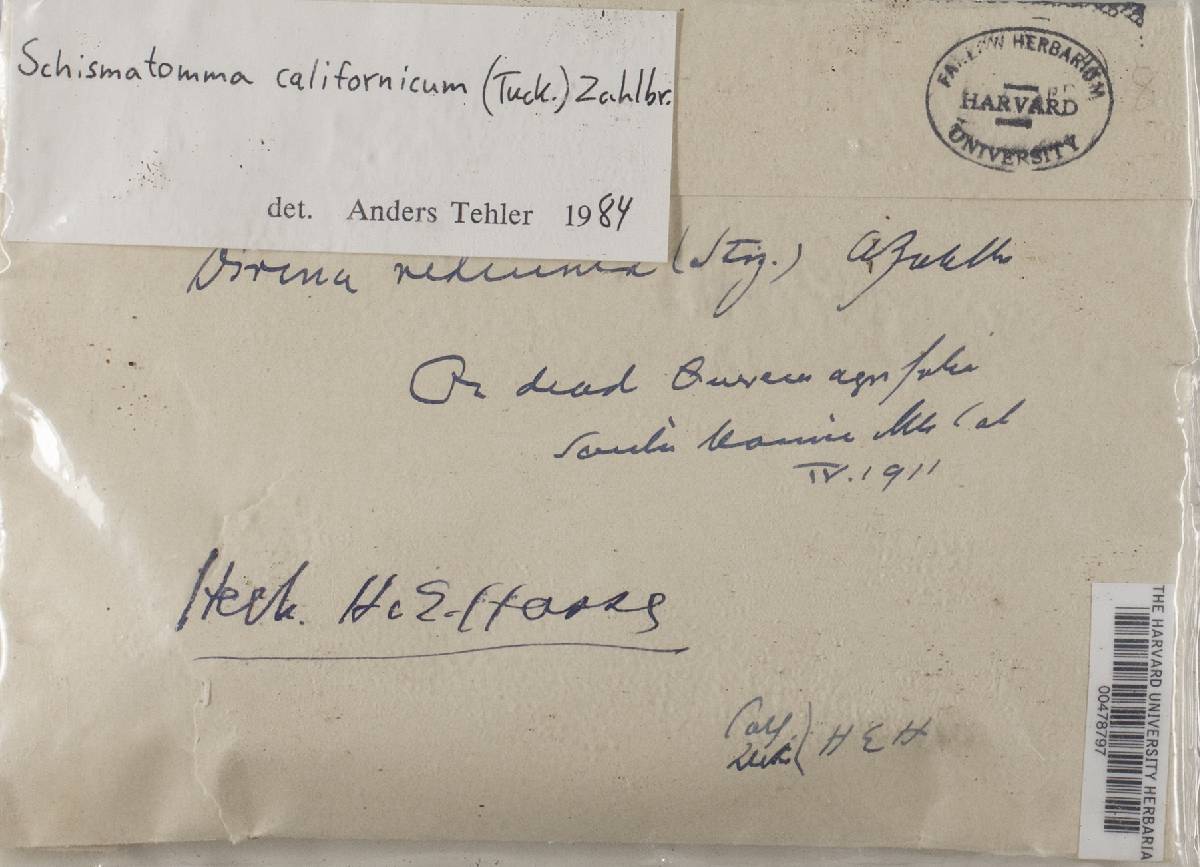 Schismatomma californicum (Tuck.) Zahlbr.
det. Anders Tehler 1984
FARLOW HERBARIUM
HARVARD
UNIVERSITY
Dirina rediunta (Stiz.) A Zahlb
On dead Quercus agrifolia
Santa Monica Mts Cal
IV. 1911
Herb. H. E. Hasse
Coll.
Det. } H E H
THE HARVARD UNIVERSITY HERBARIA
00478797